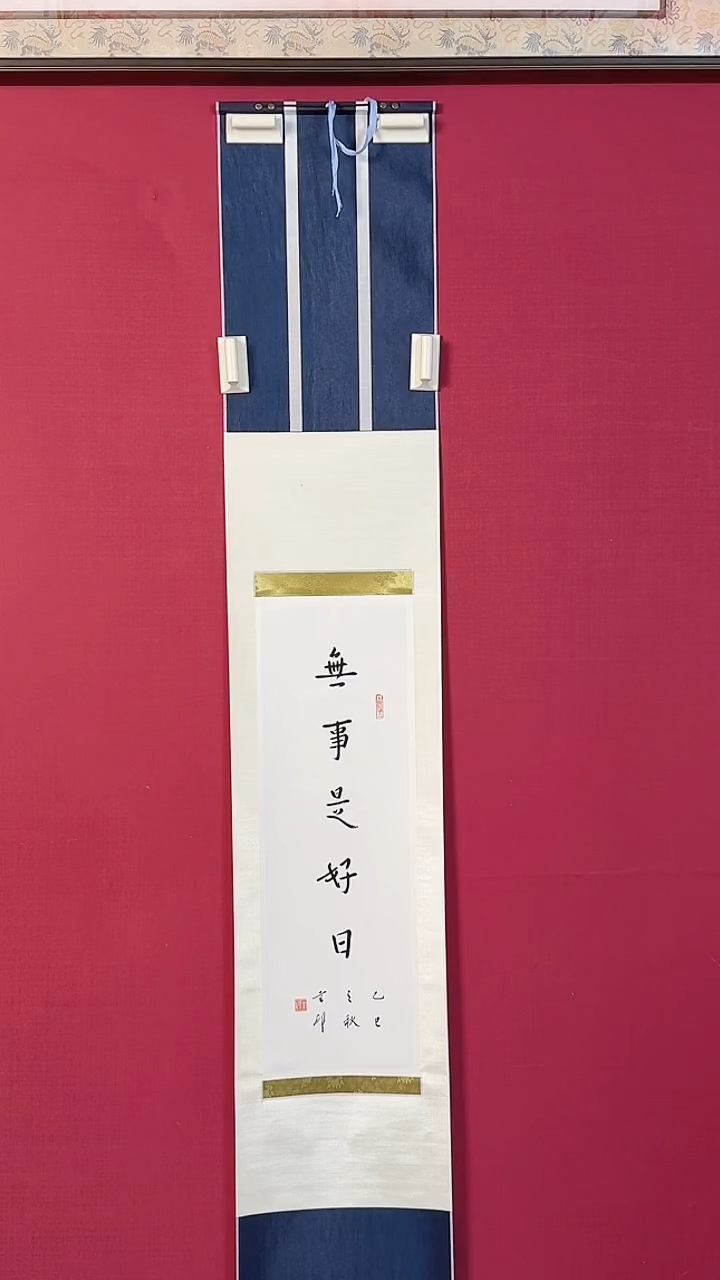 無事是好日
乙巳
之秋